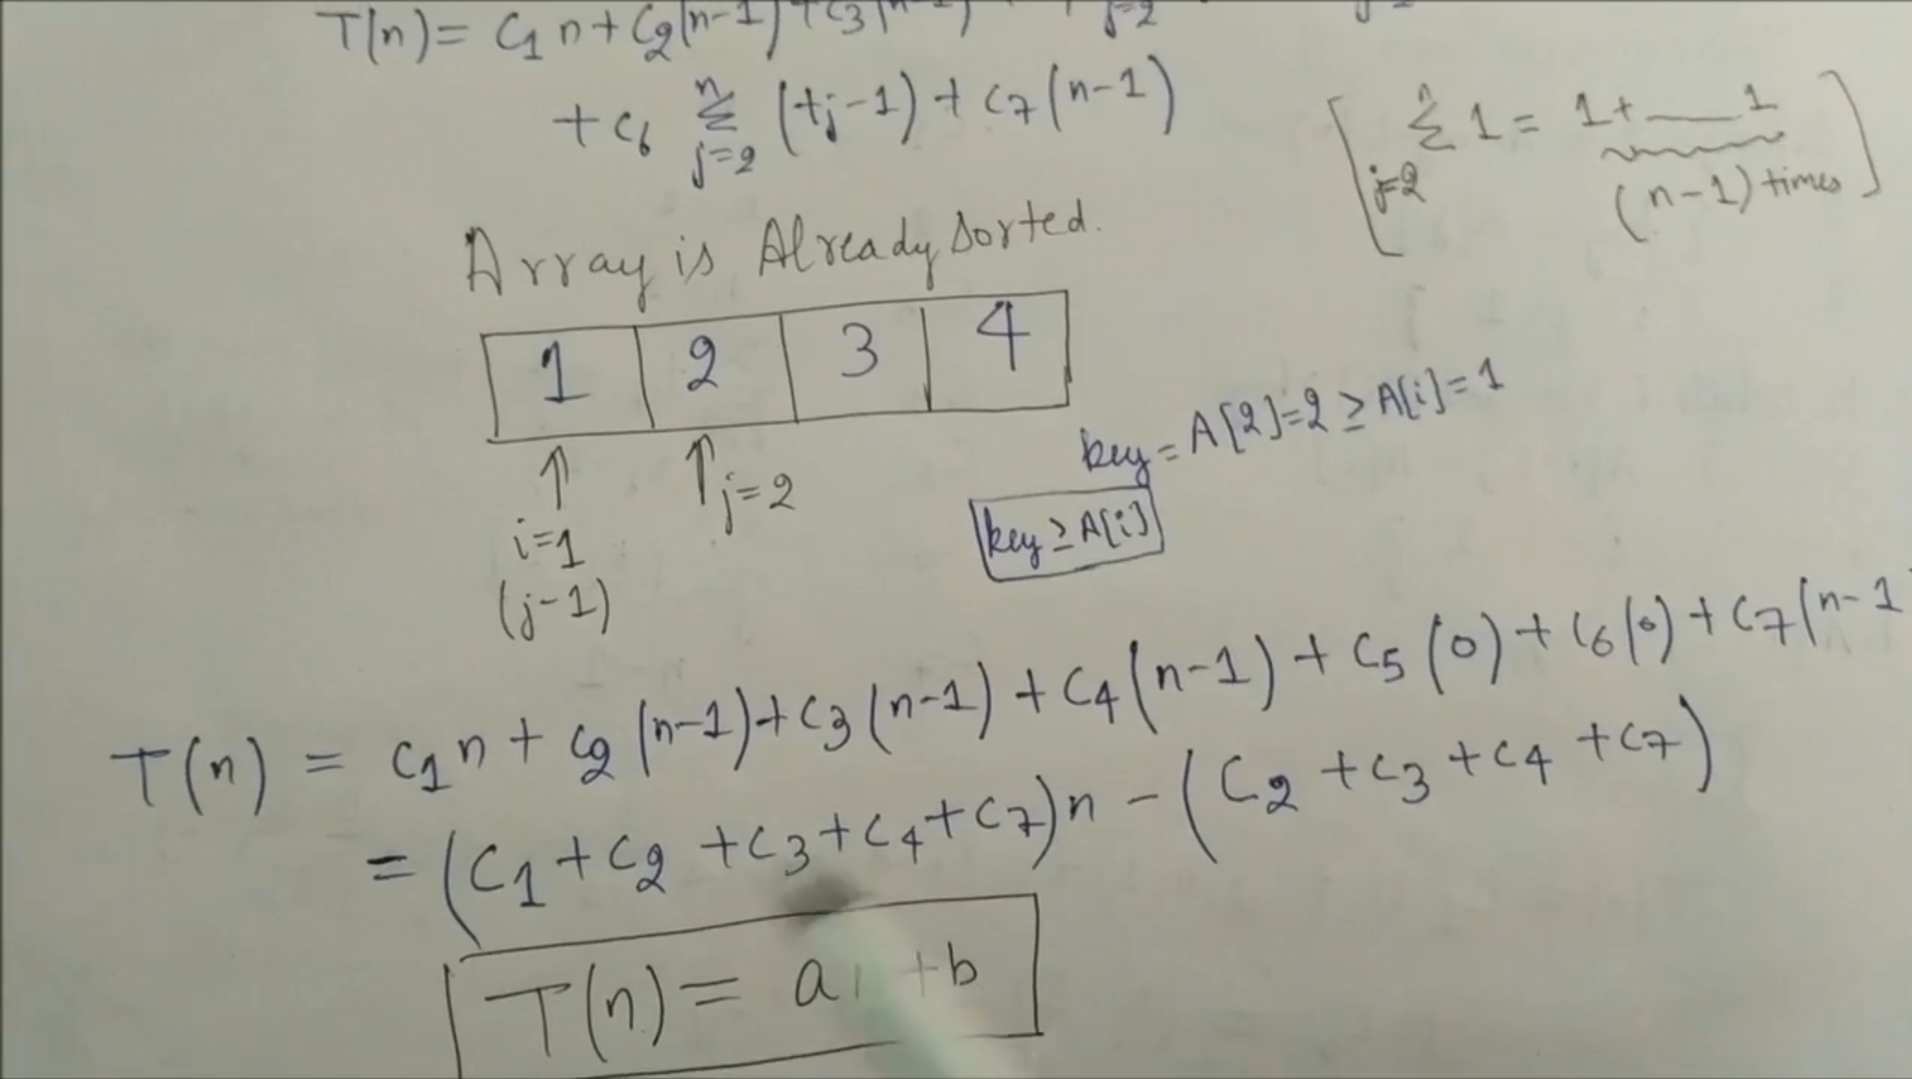 T(n) = C1 n + C2(n-1) + C3(n-1) j=2
+ C6 n Σ j=2 (tj-1) + C7(n-1)
[ n Σ j=2 1 = 1+ __ 1
(n-1) times ]
Array is Already Sorted.
1 2 3 4
key = A[2]=2 ≥ A[i]=1
j=2
key ≥ A[i]
i=1
(j-1)
T(n) = C1n + C2(n-1) + C3(n-1) + C4(n-1) + C5(0) + C6(0) + C7(n-1
= (C1+C2+C3+C4+C7)n - (C2+C3+C4+C7)
T(n) = a +b